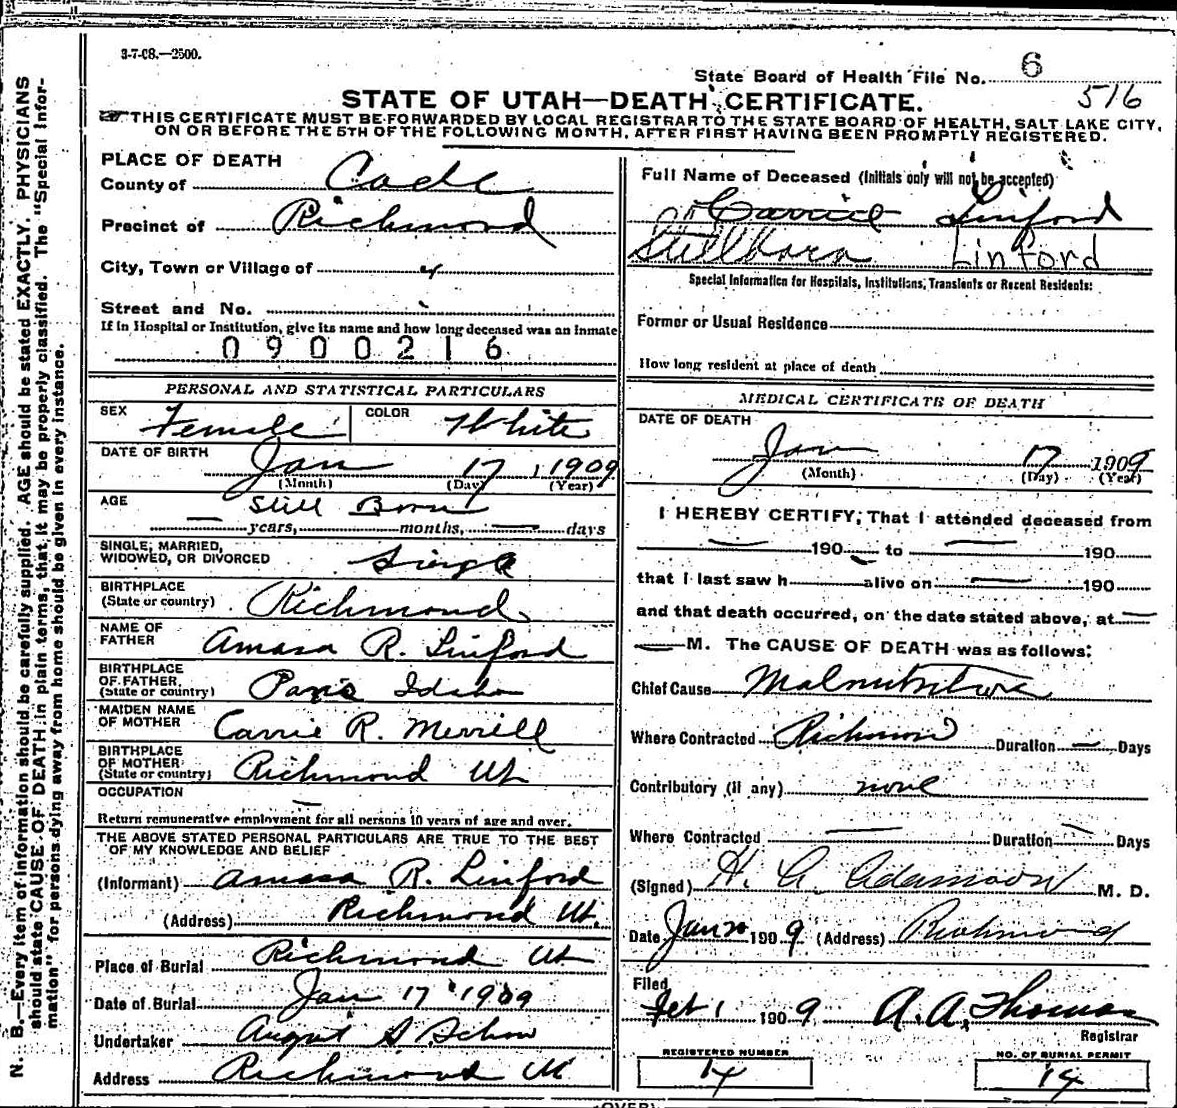 3-7-08.—2500.
State Board of Health File No. 6
516
STATE OF UTAH—DEATH CERTIFICATE.
THIS CERTIFICATE MUST BE FORWARDED BY LOCAL REGISTRAR TO THE STATE BOARD OF HEALTH, SALT LAKE CITY,
ON OR BEFORE THE 5TH OF THE FOLLOWING MONTH, AFTER FIRST HAVING BEEN PROMPTLY REGISTERED.
PLACE OF DEATH
County of
Precinct of Richmond
City, Town or Village of
Street and No.
If in Hospital or Institution, give its name and how long deceased was an inmate
0900216
PERSONAL AND STATISTICAL PARTICULARS
SEX Female COLOR White
DATE OF BIRTH Jan 17, 1909
(Month) (Day) (Year)
AGE Still Born
years, months, days
SINGLE, MARRIED,
WIDOWED, OR DIVORCED Single
BIRTHPLACE
(State or country) Richmond
NAME OF
FATHER Amasa R. Linford
BIRTHPLACE
OF FATHER,
(State or country) Paris Idaho
MAIDEN NAME
OF MOTHER Carrie R. Merrill
BIRTHPLACE
OF MOTHER
(State or country) Richmond Ut
OCCUPATION
Return remunerative employment for all persons 10 years of age and over.
THE ABOVE STATED PERSONAL PARTICULARS ARE TRUE TO THE BEST
OF MY KNOWLEDGE AND BELIEF
(Informant) Amasa R. Linford
(Address) Richmond Ut.
Place of Burial Richmond Ut
Date of Burial Jan 17 1909
Undertaker August S
Address Richmond Ut
Full Name of Deceased (Initials only will not be accepted)
Carrie Linford
Stillborn Linford
Special Information for Hospitals, Institutions, Transients or Recent Residents:
Former or Usual Residence
How long resident at place of death
MEDICAL CERTIFICATE OF DEATH
DATE OF DEATH
Jan 17 1909
(Month) (Day) (Year)
I HEREBY CERTIFY, That I attended deceased from
190 to 190
that I last saw h alive on 190
and that death occurred, on the date stated above, at
M. The CAUSE OF DEATH was as follows:
Chief Cause Malnutrition
Where Contracted Richmond Duration Days
Contributory (if any) none
Where Contracted Duration Days
(Signed) H. A. Adamson M. D.
Date Jan 20 1909 (Address) Richmond
Filed
Feb 1 1909 A. A. Thomas
Registrar
REGISTERED NUMBER
14
NO. OF BURIAL PERMIT
14
(OVER)
N. B.—Every item of information should be carefully supplied. AGE should be stated EXACTLY. PHYSICIANS
should state CAUSE OF DEATH in plain terms, that it may be properly classified. The "Special Infor-
mation" for persons dying away from home should be given in every instance.